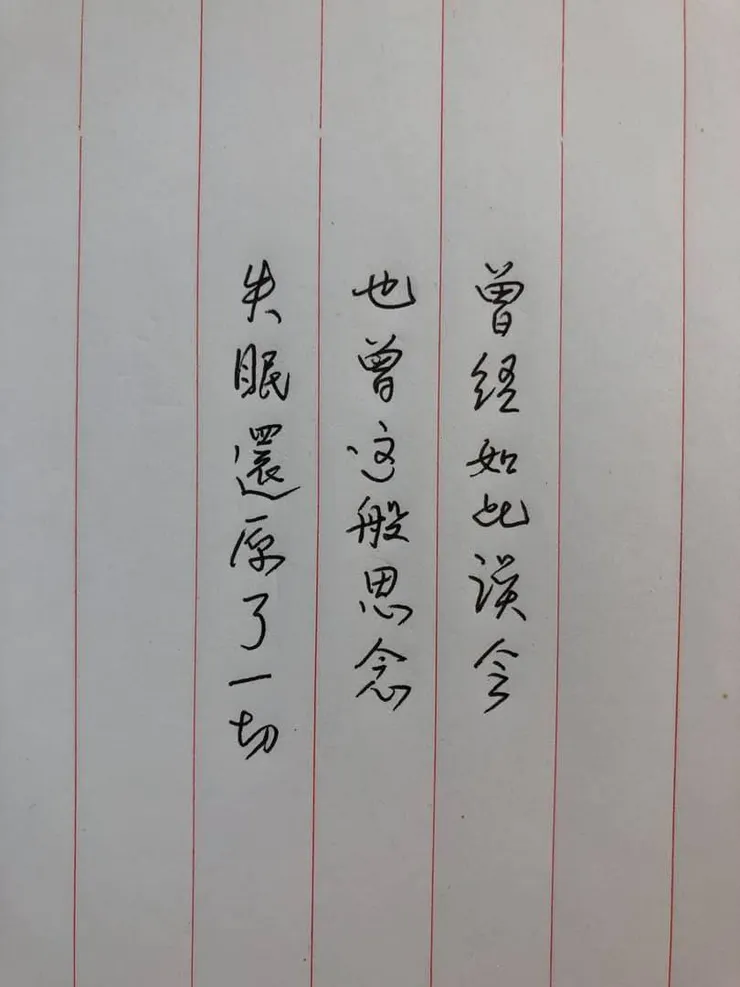 曾经如此误会
也曾这般思念
失眠還原了一切